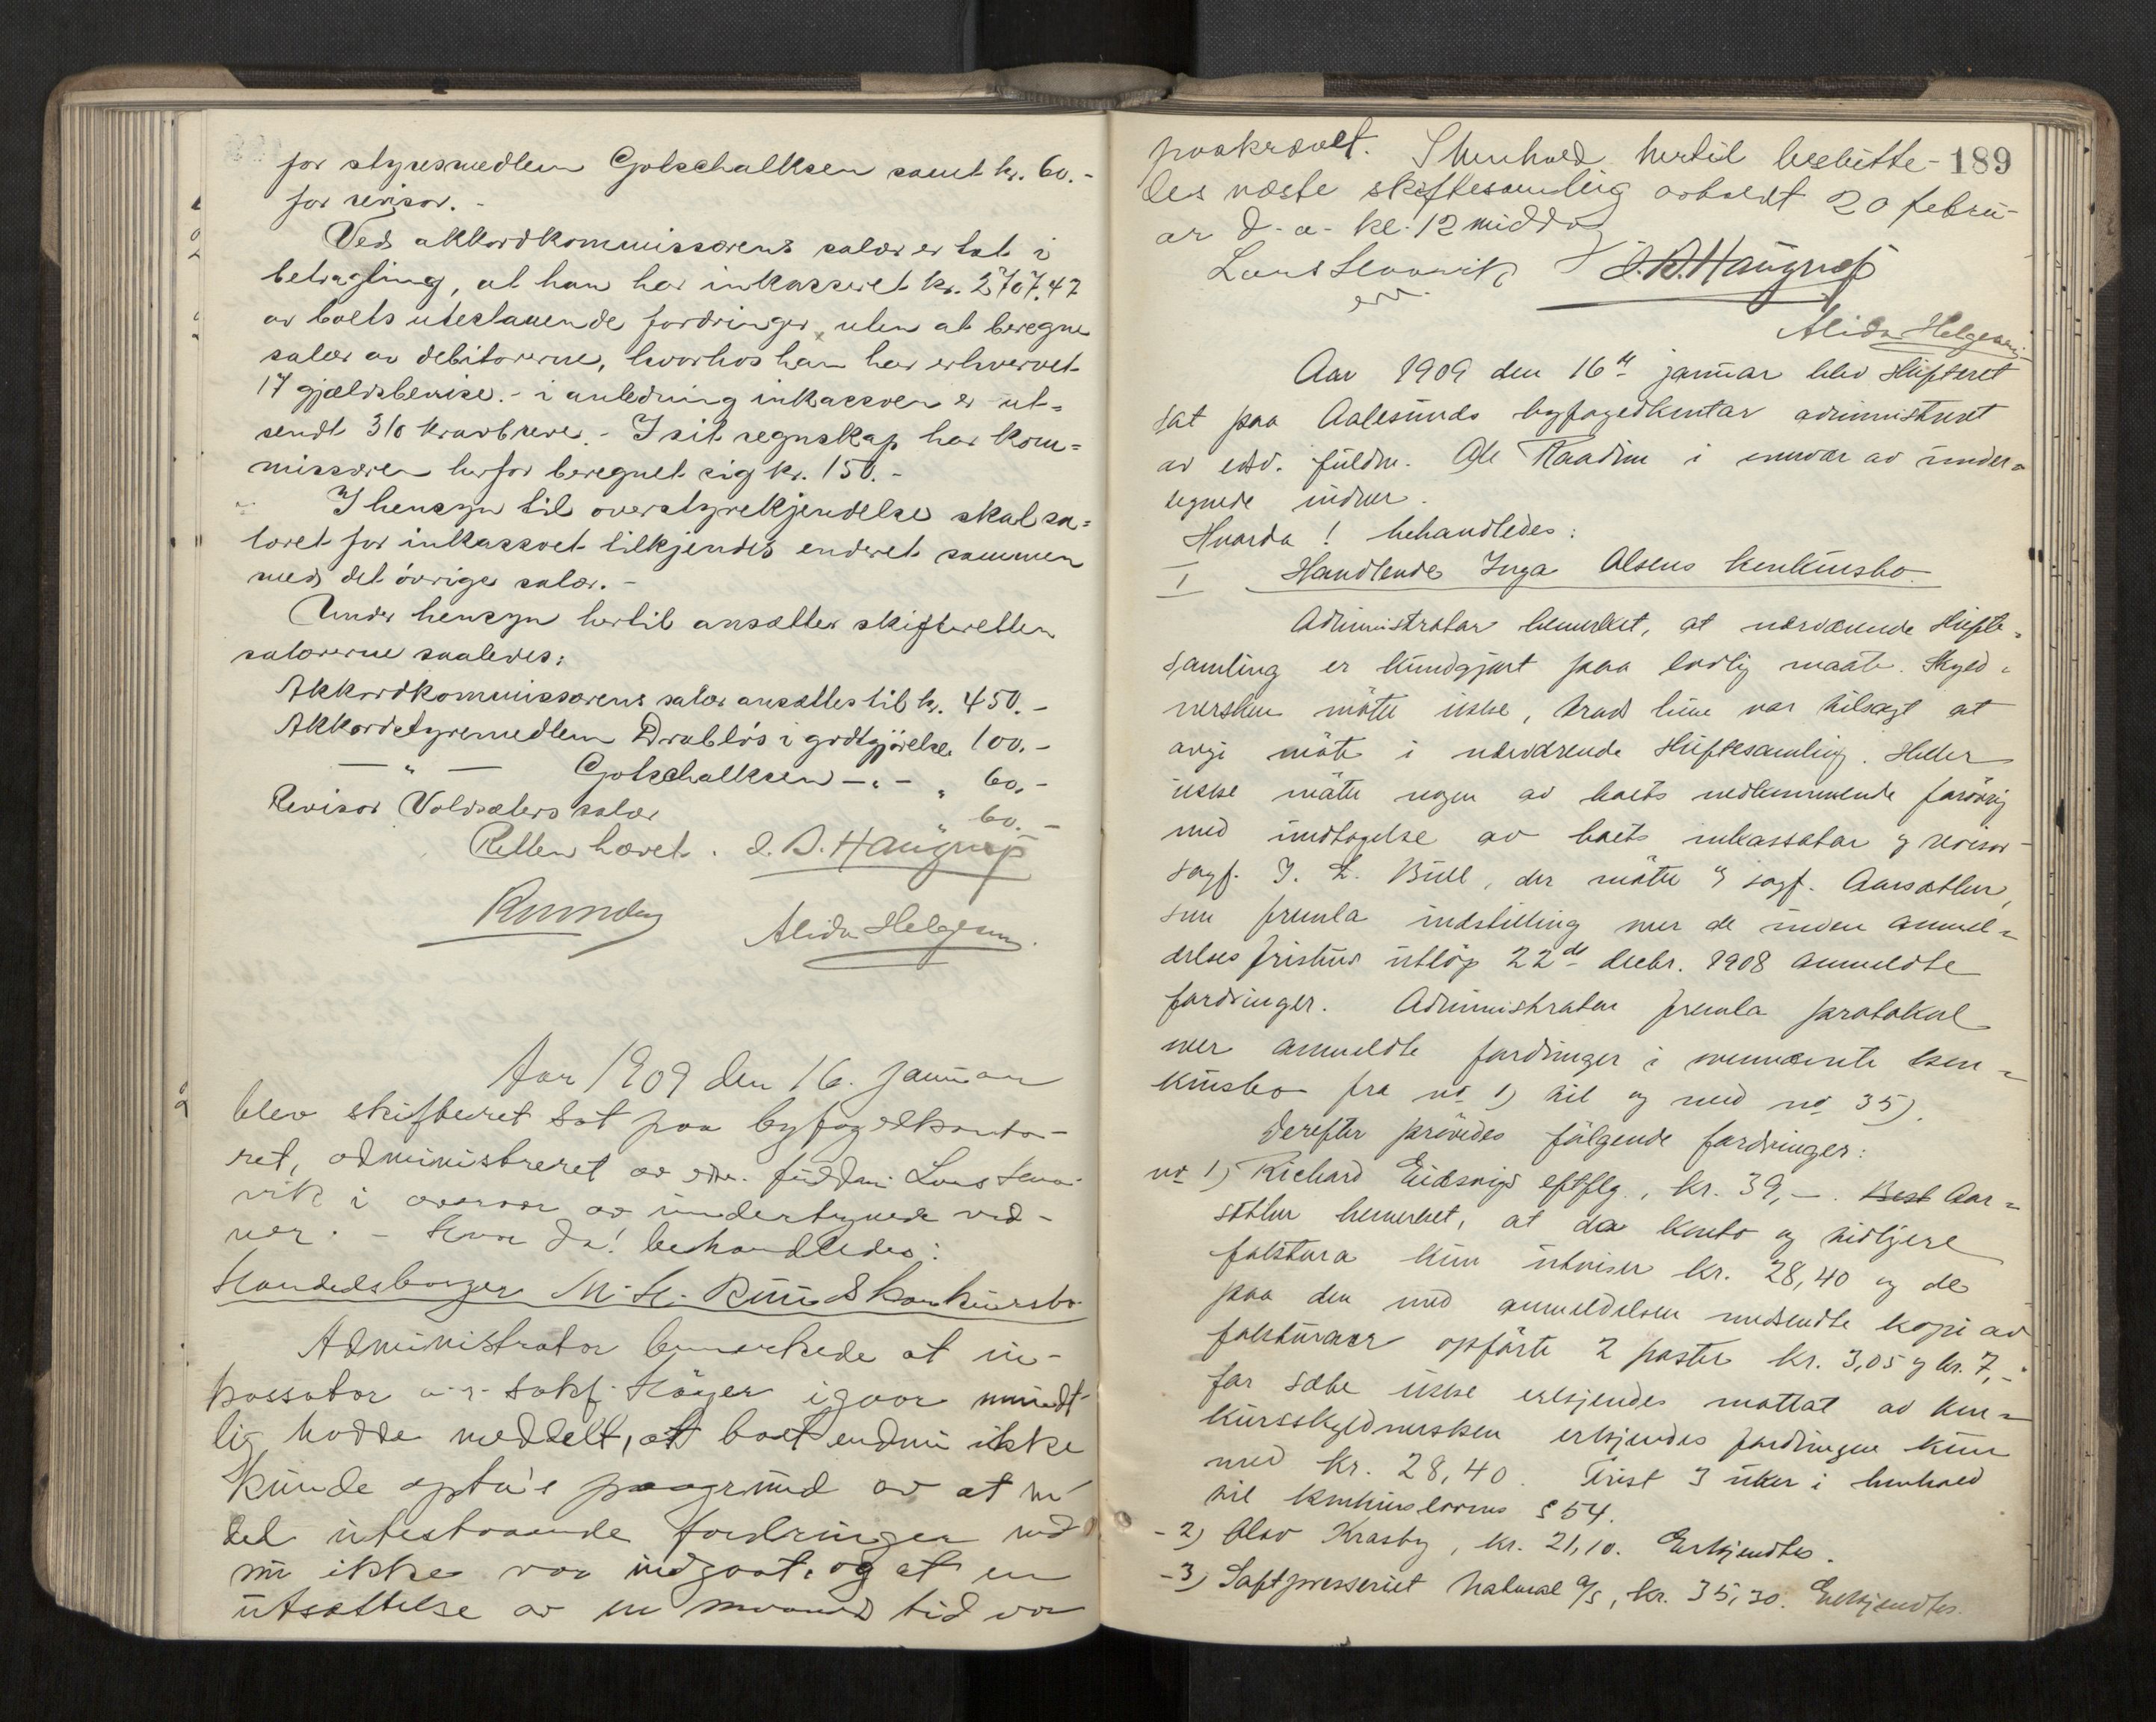 for styresmedlem Gotschalksen samt kr. 60.-
for revisor. -
Ved akkordkommissærens salær er tat i
betragtning, at han har inkasseret kr. 2707.47
av boets utestaaende fordringer, uten at beregne
salær av debitorerne, hvorhos han har erhvervet
17 gjældsbevise. - i anledning inkassoen er ut-
sendt 310 kravbreve. - I sit regnskap har kom-
missæren herfor beregnet sig kr. 150.-
I hensyn til overstyrekjendelse skal sa-
læret for inkassoet tilkjendes enderet sammen
med det övrige salær. -
Under hensyn hertil ansætter skifteretten
salærerne saaledes:
Akkordkommissærens salær ansættes til kr. 450.-
Akkordstyremedlem Drabløs i godtgjörelse 100.-
— " — Gotschalksen — " — " 60.-
Revisor Voldsæters salær " 60.-
Retten hævet. J. D. Haugrup
Alida Helgesen.
Aar 1909 den 16. januar
blev skifteret sat paa byfogedkonto-
ret, administreret av edsv. fuldm. Lars
vik i overvær av undertegnede vid-
ner. - Hvor da! behandledes:
Handelsborger M. H. Ruuds konkursbo.
Administrator bemerkede at in-
kassator o.r. sakf. Höyer igaar mundt-
lig hadde meddelt, at boet endnu ikke
kunde opta's paagrund av at en
del utestaaende fordringer end
nu ikke var indgaat og at en
utsættelse av en maaneds tid var
paakrævet. I henhold hertil beslutte- 189
des næste skiftesamling avholdt 20 febru-
ar d. a. kl. 12 middag
Lars J. D. Haugrup
Alida Helgesen
Aar 1909 den 16de januar blev skifteret
sat paa Aalesunds byfogedkontor administreret
av edsv. fuldm. Ole Raadim i overvær av under-
tegnede vidner.
Hvorda! behandledes:
I Handlende Inga Olsens konkursbo.
Administrator bemerket, at nærværende skifte-
samling er kundgjort paa lovlig maate. Skyld-
nersken mötte ikke, trods hun var tilsagt at
avgi möte i nærværende skiftesamling. Heller
ikke mötte nogen av boets vedkommende forövrig
med undtagelse av boets inkassator og revisor
sagf. J. L. Bull, der mötte ved sagf. Aarsæther,
som fremla indstilling over de inden anmel-
delsesfristens utlöp 22de decbr. 1908 anmeldte
fordringer. Administrator fremla protokol
over anmeldte fordringer i ovennævnte kon-
kursbo fra no 1) til og med no 35).
Derefter prövedes fölgende fordringer:
no 1) Richard Eidsvigs eftflg., kr. 39,-. Best Aar-
sæther bemerket, at da konto og tidligere
faktura kun utviser kr. 28,40 og de
paa den med anmeldelsen medsendte kopi av
fakturaer opförte 2 poster kr. 3,05 og kr. 7,-
for sæbe ikke erkjendes mottat av kon-
kursskyldnersken erkjendes fordringen kun
med kr. 28,40. Frist 3 uker i henhold
til konkurslovens § 54.
- 2) Olav Krasby, kr. 21,10. Erkjendtes.
- 3) Saftpresseriet Natural A/S, kr. 35,30. Erkjendtes.